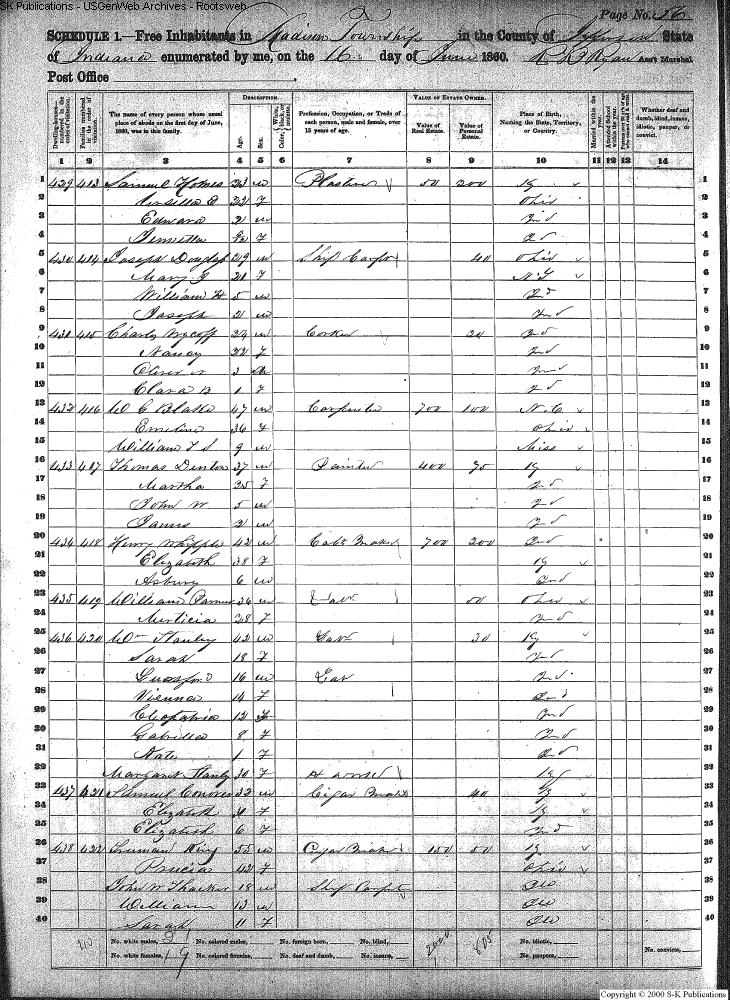 SK Publications - USGenWeb Archives - Rootsweb
Page No. 56
SCHEDULE 1.—Free Inhabitants in Madison Township in the County of Jefferson State
of Indiana enumerated by me, on the 16 day of June 1860. Ryan Ass't Marshal
Post Office
Dwelling-houses—numbered in the order of visitation.
Families numbered in the order of visitation.
The name of every person whose usual place of abode on the first day of June, 1860, was in this family.
DESCRIPTION.
Age.
Sex.
Color, White, black, or mulatto.
Profession, Occupation, or Trade of each person, male and female, over 15 years of age.
VALUE OF ESTATE OWNED.
Value of Real Estate.
Value of Personal Estate.
Place of Birth, Naming the State, Territory, or Country.
Married within the year.
Attended School within the year.
Whether deaf and dumb, blind, insane, idiotic, pauper, or convict.
1 2 3 4 5 6 7 8 9 10 11 12 13 14
1 429 413 Samuel Homes 23 m Plasterer 50 200 Ky 1
2 22 f Ohio 2
3 Edward 2 m Ind 3
4 f 4
5 430 414 Joseph 29 m Ship Carpt 40 Ohio 5
6 Mary J 21 f N.Y 6
7 William H 5 m Ind 7
8 Joseph 2 m Ind 8
9 431 415 Charly Wycoff 29 m 20 Ind 9
10 Nancy 22 f Ind 10
11 Oliver 3 m Ind 11
12 Clara B 1 f Ind 12
13 432 416 W C Blake 47 m Carpenter 700 100 N.C 13
14 Emeline 36 f Ohio 14
15 William T S 9 m Miss 15
16 433 417 Thomas Denton 37 m Painter 400 75 Ky 16
17 Martha 25 f Ind 17
18 John W 5 m Ind 18
19 James 2 m Ind 19
20 434 418 Henry Whipple 42 m Cabt Maker 700 200 Ind 20
21 Elizabeth 38 f Ky 21
22 Asbury 6 m Ind 22
23 435 419 William 36 m Labr 50 Ohio 23
24 28 f Ind 24
25 436 420 Wm Stanley 42 m Labr 30 Ky 25
26 Sarah 18 f Ind 26
27 16 m Ind 27
28 Vienna 14 f Ind 28
29 Cleopatria 12 f Ind 29
30 Gabrilla 8 f Ind 30
31 1 f Ind 31
32 Margaret Stanly 30 f Ky 32
33 437 421 Samuel Conover 32 m Cigar Maker 40 Ky 33
34 Elizabeth 30 f Ky 34
35 Elizabeth 6 f Ind 35
36 438 422 Truman King 55 m Cigar Maker 150 50 Ky 36
37 42 f Ohio 37
38 John W Thacker 18 m Ship Carpt 38
39 William 13 m 39
40 Sarah 11 f 40
No. white males, No. colored males, No. foreign born, No. blind, 2000 805 No. idiotic, No. convicts,
No. white females, 19 No. colored females, No. deaf and dumb, No. insane, No. paupers,
Copyright © 2000 S-K Publications